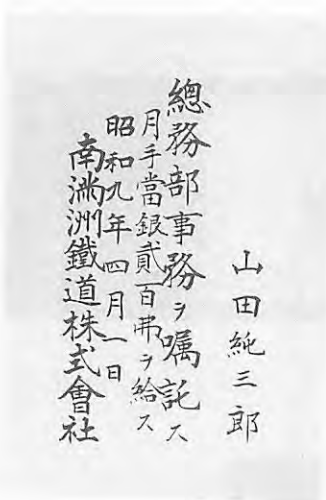 山田純三郎
總務部事務ヲ嘱託ス
月手當銀貳百弗ヲ給ス
昭和九年四月一日
南滿洲鐵道株式會社